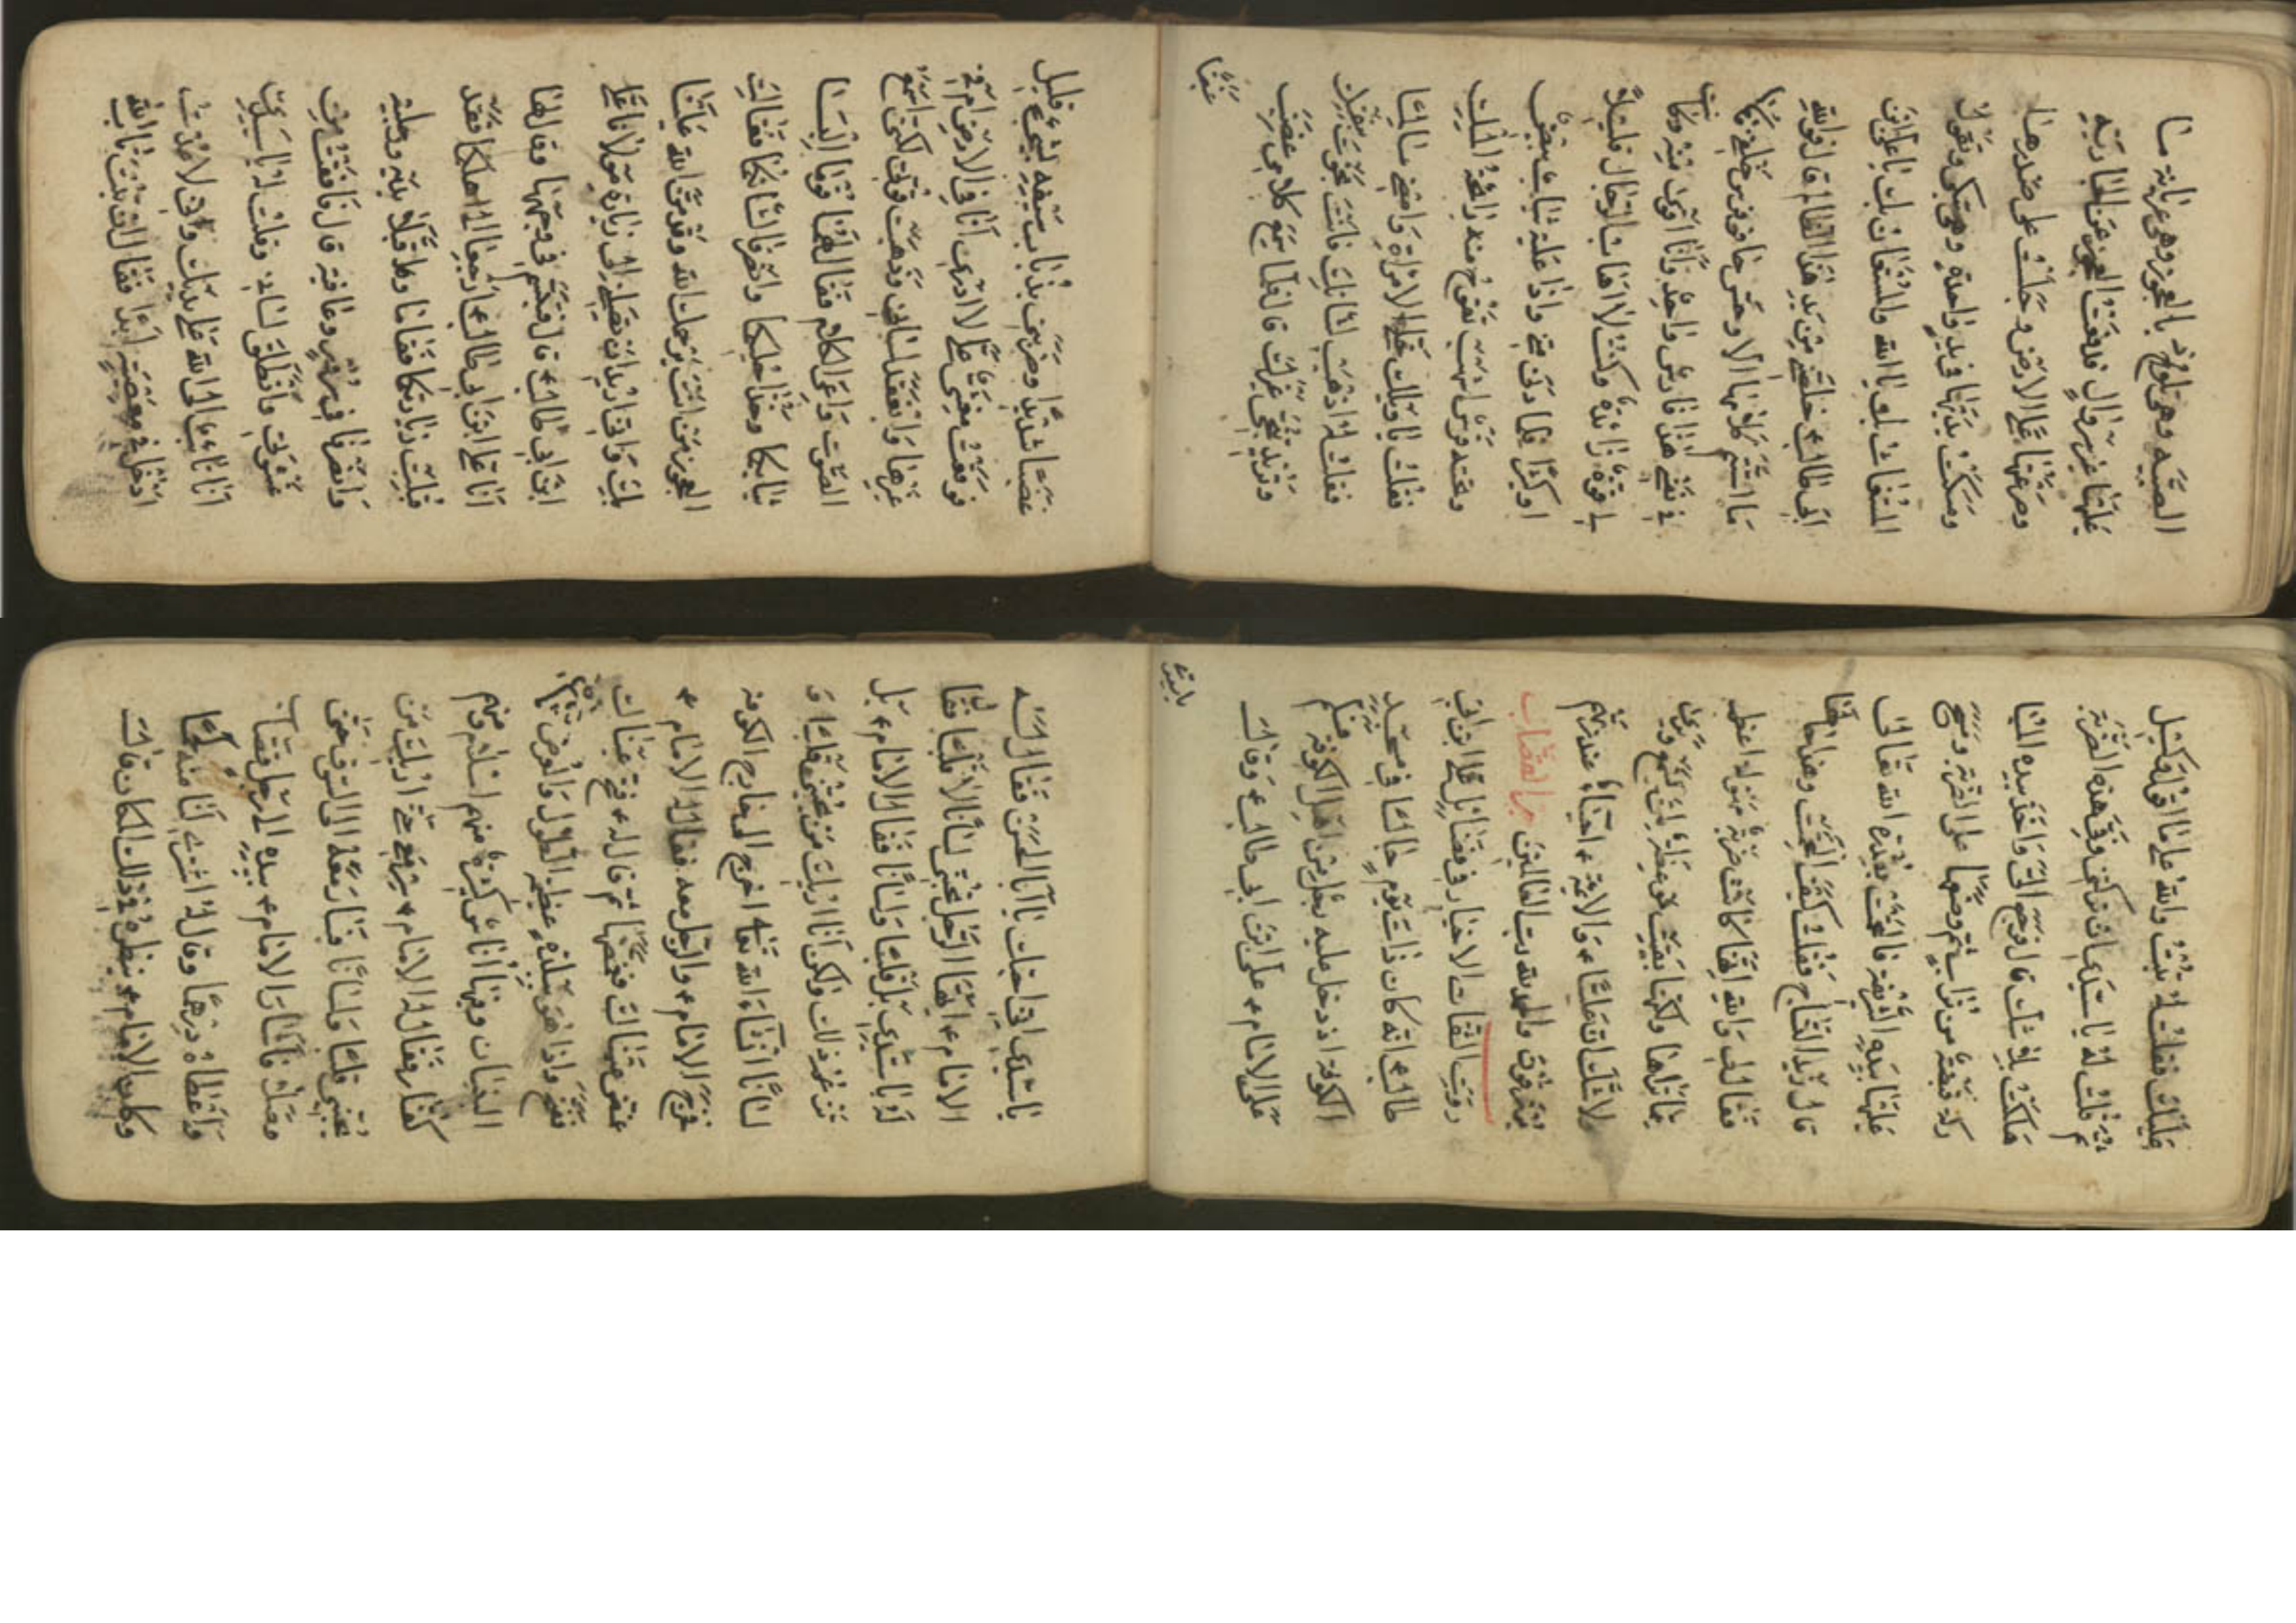 الصبيه وهي تلوذ بالعجوز وهي عريانه ما
عليها غير سروال فدفعت العجوز عن الجاريه
وصرعتها على الارض وجلست على صدرها
ومسكت يديها في يد واحدة وهي تبكي وتقول
المستغاث بك يا الله والمستغاث بك يا علي ابن
ابي طالب ع خلصني من يد هذا الظالم قال فوالله
ما استتم كلامها الا وحس حافر فرس خلفي فقلت
في نفسي هذا فارس واحد وانا اقوى منه وكانت
لي قوة زائدة وكنت لا اهاب الرجال قليلا
او كثرا فلما دنى مني واذا عليه ثياب بيض
وتحته فرس اشهب تفوح منه رائحة المسك
فقال لي يا ويلك خل الامراة وامضي سالما
فقلت له اذهب لشانك فانت نجوت بنفسك
وتريد تنجي غيرك قال فلما سمع كلامي غضب
غضبا
غضبا شديدا وضربني بذباب سيفه بشيء قليل
فوقعت مغشيا علي لا ادري انا في الارض ام في
غيرها وانعقد لساني وذهبت قوتي لكني اسمع
الصوت واعي الكلام فقال لهما قوما البسا
ثيابكما وخذا حليكما وانصرفا لشانكما فقالت
العجوز من انت يرحمك الله وقد من الله علينا
بك واني اريد ان تصلنا الى زيارة مولانا علي
ابن ابي طالب ع قال فتبسم في وجهها وقال لها
انا علي ابن ابي طالب ع ارجعا الى اهلكما فقد
قبلت زيارتكما فقامتا وقبلا يديه ورجليه
وانصرفا في سرور وعافيه قال فافقت من
غشوتي وانطلق لساني وقلت له يا سيدي
انا تائب الى الله على يديك واني لا عدت
ادخل في معصية ابدا فقال ان تبت تاب الله
عليك فقلت له تبت والله على ما اقول وكيل
ثم قلت له يا سيدي ان تركتني وفي هذه الضربة
هلكت بلا شك قال فرجع الي واخذ بيده
قبضة من تراب ثم وضعها على الضربه ومسح
عليها بيده الشريفه فالتحمت بقدرة الله تعالى
قال زيد النساج فقلت كيف التحمت وهذا حالها
فقال لي والله انها كانت ضربة مهوله اعظم
مما تراها ولكنها بقيت موعظة لمن يسمع ويرى
لا شك ان عليا ع والائمه ع احياء عند ربهم
يرزقون والحمد لله رب العالمين خبر القصاب
رويت الثقات الاخيار في فضائل علي ابن ابي
طالب ع انه كان ذات يوم جالسا في مسجد
الكوفة اذ دخل عليه رجل من اهل الكوفة فسلم
على الامام ع علي ابن ابي طالب ع وقال له
يا سيدي
يا سيدي اني احبك يا ابا الحسن فقال له
الامام ع ايها الرجل تحبني لسانا لا قلبا فقال
له يا سيدي بل قلبا ولسانا فقال الامام ع بل
تزعم ذلك ولكن انا اريك من يحبني قلبا و
لسانا انشاء الله تعالى اخرج الى خارج الكوفه
فخرج الامام ع والرجل معه فقال له الامام ع
غمض عيناك فغمضها ثم قال له ع فتح عيناك
ففتح واذا هو ببلدة عظيمة الطول والعرض كثيرة
البنيان وفيها اناس كثيرة منهم اسلام ومنهم
كفار فقال له الامام ع سر معي حتى اريك من
يحبني قلبا ولسانا فسار معه الى السوق حتى
وصل فاشار الامام ع بيده الى رجل قصاب
واعطاه درهما وقال له اشتري لنا منه لحما
وكان الامام ع ينظره في ذلك المكان قال